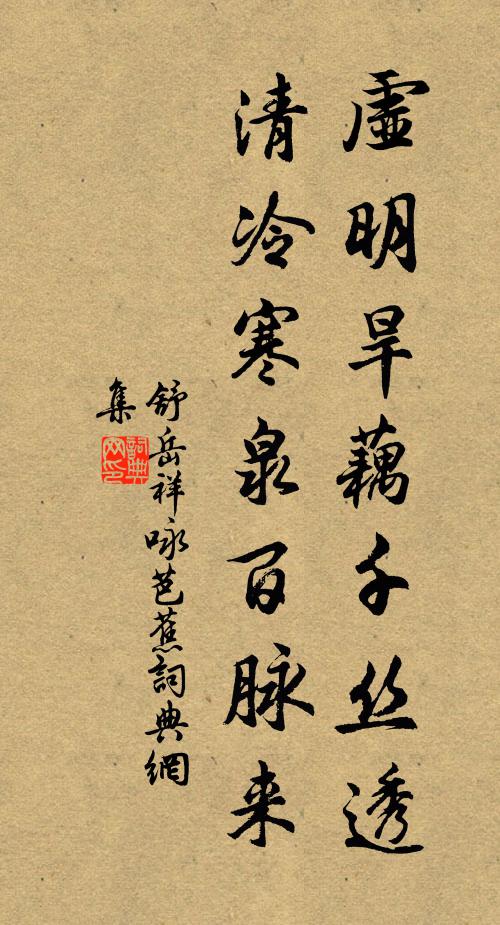 虛明旱藕千丝透
清冷寒泉百脉来
舒岳祥咏芭蕉詞典網
集
詞典网印